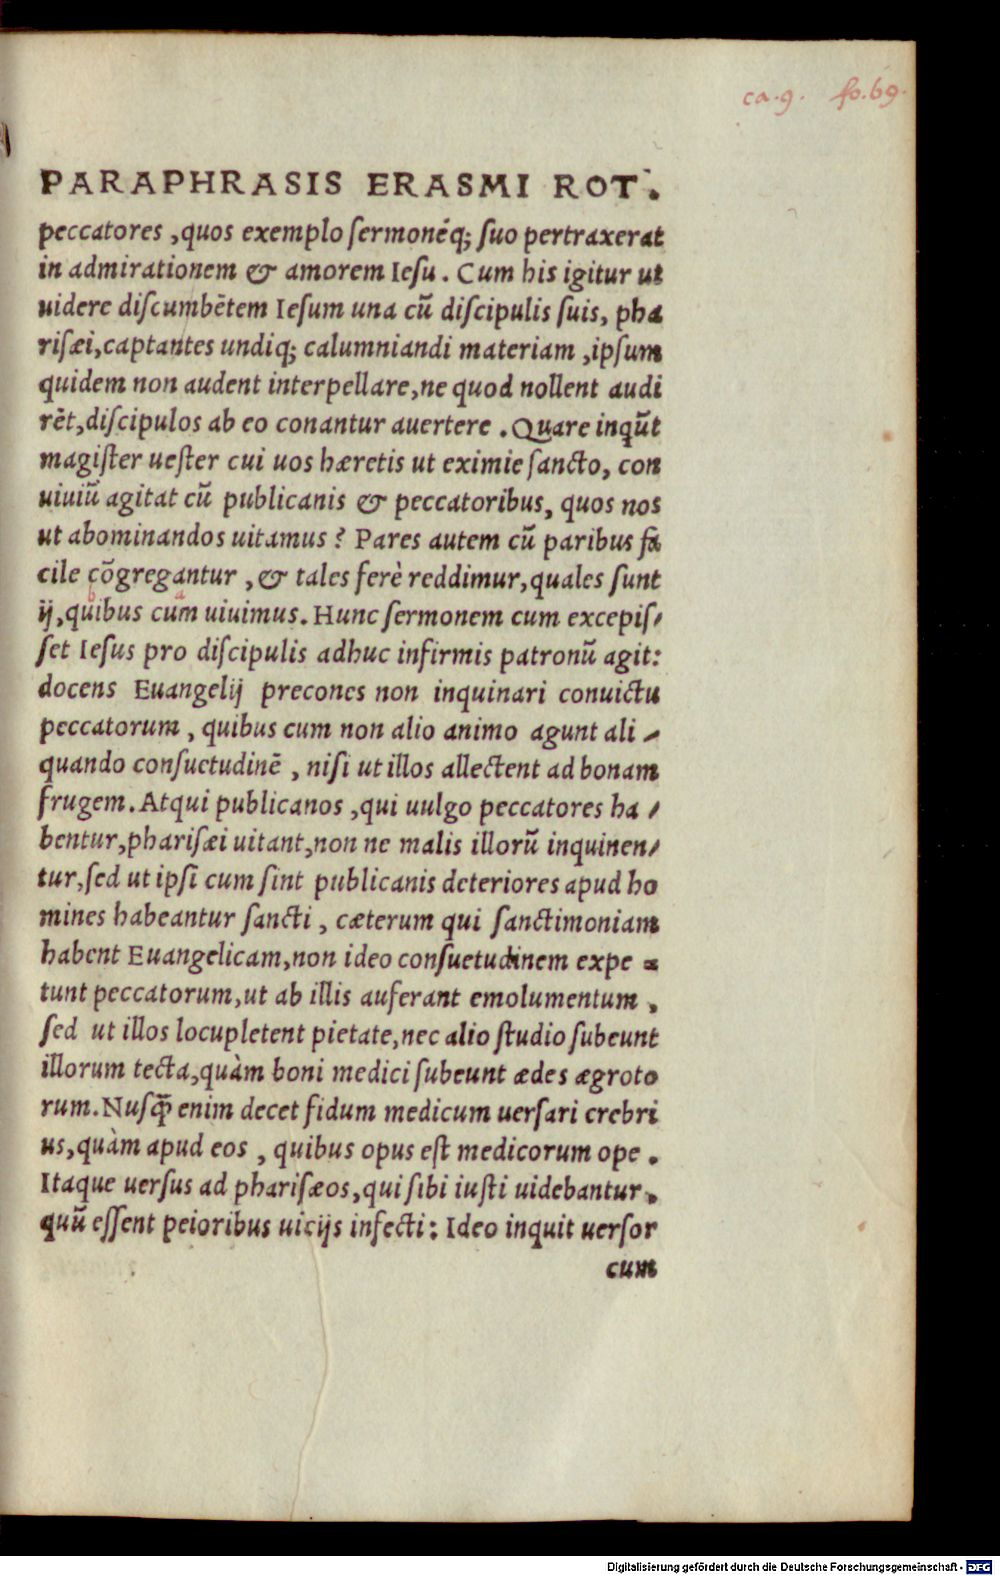 ca. 9. fo. 69.
PARAPHRASIS ERASMI ROT.
peccatores, quos exemplo ſermonéq; ſuo pertraxerat
in admirationem & amorem Ieſu. Cum his igitur ut
uidere diſcumbētem Ieſum una cũ diſcipulis ſuis, pha
riſæi, captantes undiq; calumniandi materiam, ipſum
quidem non audent interpellare, ne quod nollent audi
rēt, diſcipulos ab eo conantur auertere. Quare inqũt
magiſter ueſter cui uos hæretis ut eximie ſancto, con
uiuiũ agitat cũ publicanis & peccatoribus, quos nos
ut abominandos uitamus? Pares autem cũ paribus fa
cile cõgregantur, & tales ferè reddimur, quales ſunt
b a
ij, quibus cum uiuimus. Hunc ſermonem cum excepiſ/
ſet Ieſus pro diſcipulis adhuc infirmis patronũ agit:
docens Euangelij precones non inquinari conuictu
peccatorum, quibus cum non alio animo agunt ali/
quando conſuetudinē, niſi ut illos allectent ad bonam
frugem. Atqui publicanos, qui uulgo peccatores ha/
bentur, phariſæi uitant, non ne malis illorũ inquinen/
tur, ſed ut ipſi cum ſint publicanis deteriores apud ho
mines habeantur ſancti, cæterum qui ſanctimoniam
habent Euangelicam, non ideo conſuetudinem expe=
tunt peccatorum, ut ab illis auferant emolumentum,
ſed ut illos locupletent pietate, nec alio ſtudio ſubeunt
illorum tecta, quàm boni medici ſubeunt ædes ægroto
rum. Nuſq̃ enim decet fidum medicum uerſari crebri
us, quàm apud eos, quibus opus eſt medicorum ope.
Itaque uerſus ad phariſæos, qui ſibi iuſti uidebantur,
quũ eſſent peioribus uicijs infecti: Ideo inquit uerſor
cum
Digitalisierung gefördert durch die Deutsche Forschungsgemeinschaft - DFG